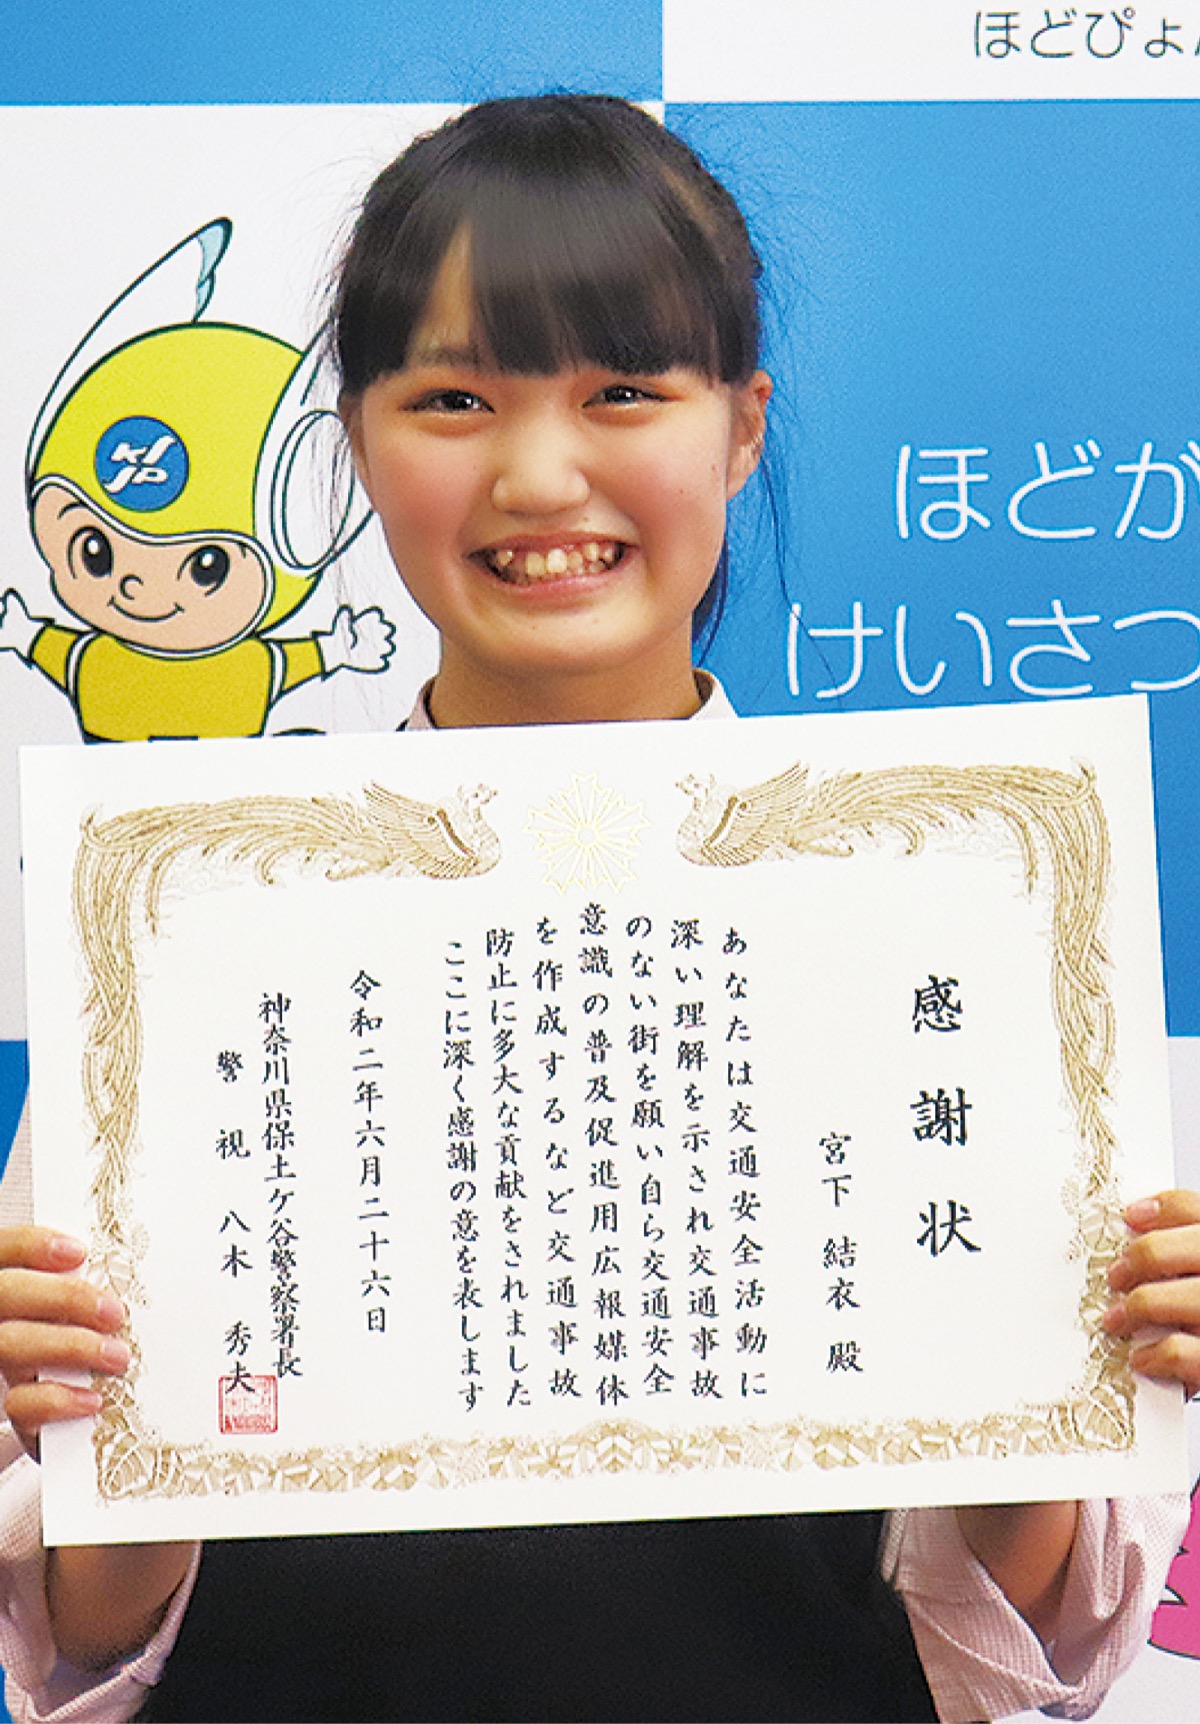 ほどぴょん
ほどが
けいさつ
KJ
JP
感謝状
宮下結衣殿
あなたは交通安全活動に
深い理解を示され交通事故
のない街を願い自ら交通安全
意識の普及促進用広報媒体
を作成するなど交通事故
防止に多大な貢献をされました
ここに深く感謝の意を表します
令和二年六月二十六日
神奈川県保土ケ谷警察署長
警視 八木秀夫